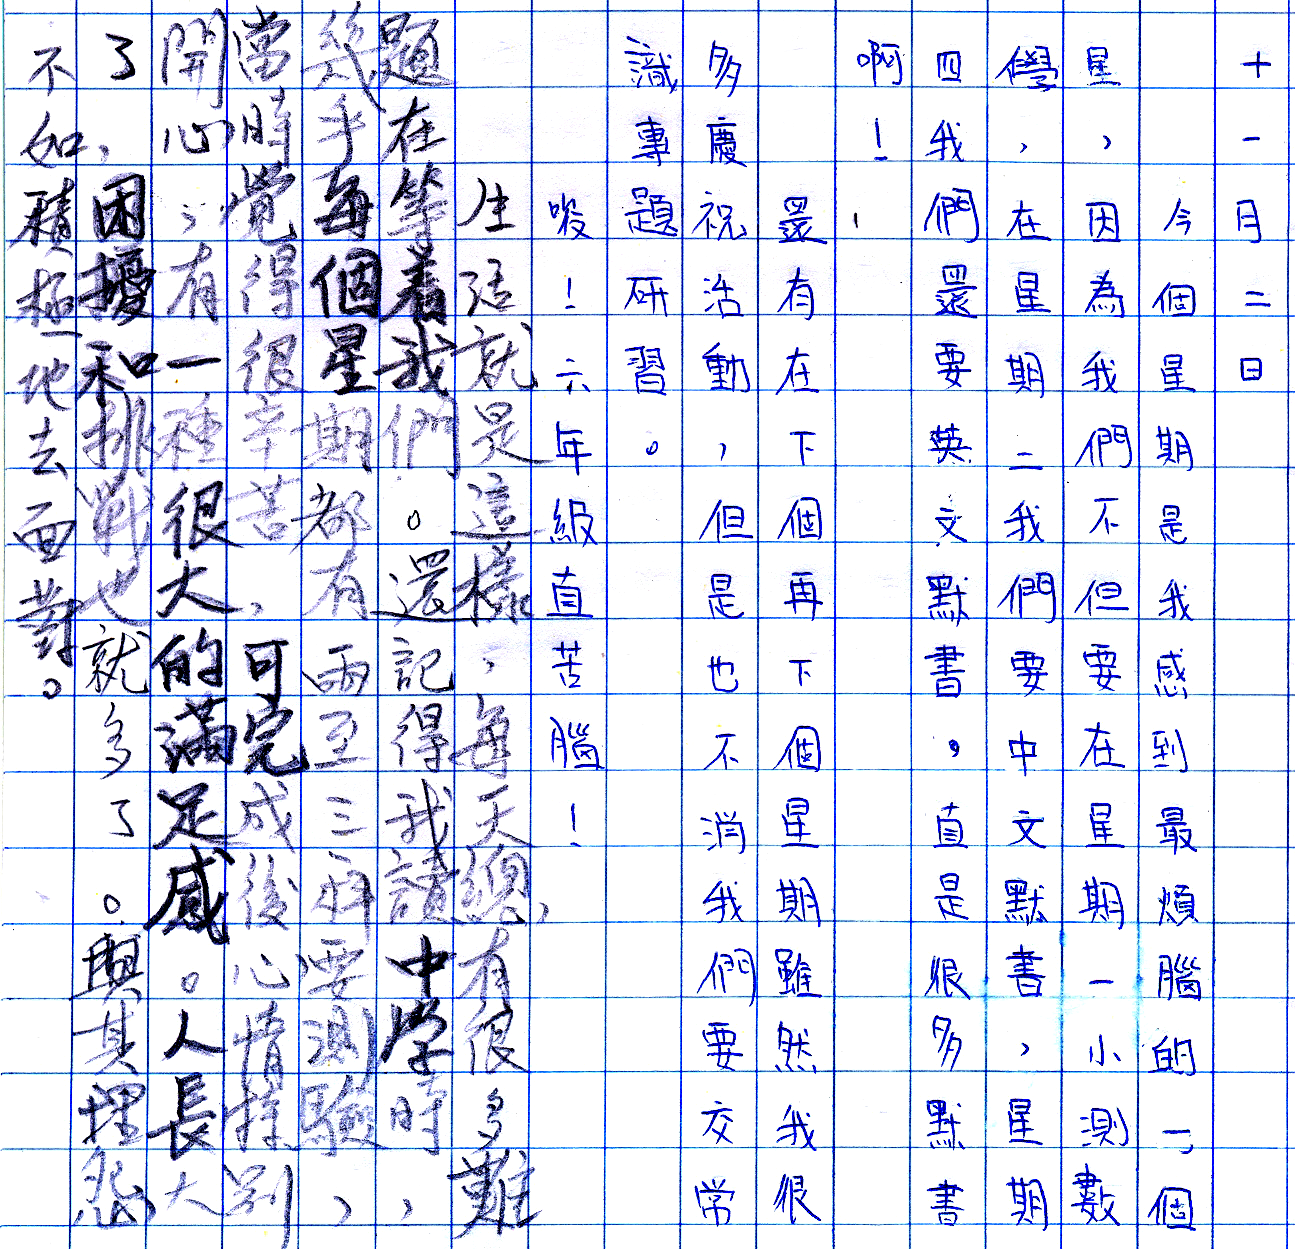 十一月二日
今個星期是我感到最煩腦的一個
星，因為我們不但要在星期一小測數
學，在星期二我們要中文默書，星期
四我們還要英文默書。直是很多默書
啊！
還有在下個再下個星期雖然我很
多慶祝活動，但是也不消我們要交常
識專題研習。
唉！六年級直苦腦！
生活就是這樣，每天總有很多難
題在等着我們。還記得我讀中學時，
幾乎每個星期都有兩至三科要測驗，
當時覺得很辛苦，可完成後心情特別
開心，有一種很大的滿足感。人長大
了，困擾和挑戰也就多了。與其埋怨，
不如積極地去面對。